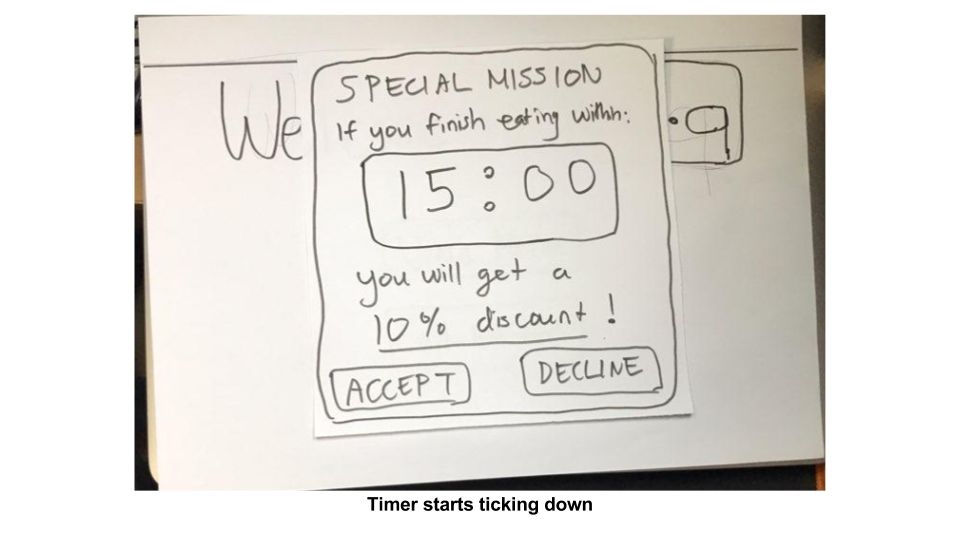 SPECIAL MISSION
If you finish eating within:
We
15:00
you will get a
10% discount!
ACCEPT DECLINE
Timer starts ticking down